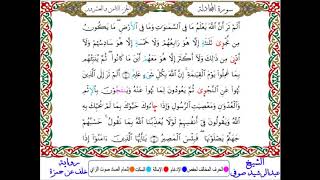 سورة المجادلة
الجزء الثامن والعشرون
أَلَمْ تَرَ أَنَّ ٱللَّهَ يَعْلَمُ مَا فِى ٱلسَّمَـٰوَٰتِ وَمَا فِى ٱلْأَرْضِ مَا يَكُونُ
مِن نَّجْوَىٰ ثَلَـٰثَةٍ إِلَّا هُوَ رَابِعُهُمْ وَلَا خَمْسَةٍ إِلَّا هُوَ سَادِسُهُمْ وَلَآ
أَدْنَىٰ مِن ذَٰلِكَ وَلَآ أَكْثَرَ إِلَّا هُوَ مَعَهُمْ أَيْنَ مَا كَانُوا۟ ثُمَّ يُنَبِّئُهُم
بِمَا عَمِلُوا۟ يَوْمَ ٱلْقِيَـٰمَةِ إِنَّ ٱللَّهَ بِكُلِّ شَىْءٍ عَلِيمٌ ٧ أَلَمْ تَرَ إِلَى ٱلَّذِينَ
نُهُوا۟ عَنِ ٱلنَّجْوَىٰ ثُمَّ يَعُودُونَ لِمَا نُهُوا۟ عَنْهُ وَيَنتَجُونَ بِٱلْإِثْمِ
وَٱلْعُدْوَٰنِ وَمَعْصِيَتِ ٱلرَّسُولِ وَإِذَا جَآءُوكَ حَيَّوْكَ بِمَا لَمْ يُحَيِّكَ بِهِ
ٱللَّهُ وَيَقُولُونَ فِىٓ أَنفُسِهِمْ لَوْلَا يُعَذِّبُنَا ٱللَّهُ بِمَا نَقُولُ حَسْبُهُمْ
جَهَنَّمُ يَصْلَوْنَهَا فَبِئْسَ ٱلْمَصِيرُ ٨ يَـٰٓأَيُّهَا ٱلَّذِينَ ءَامَنُوٓا۟ إِذَا
الشيخ
عبدالرشيد صوفي
الحرف المخالف لحفص الإدغام الإمالة السكت إشمام الصاد صوت الزاي
رواية
خلف عن حمزة